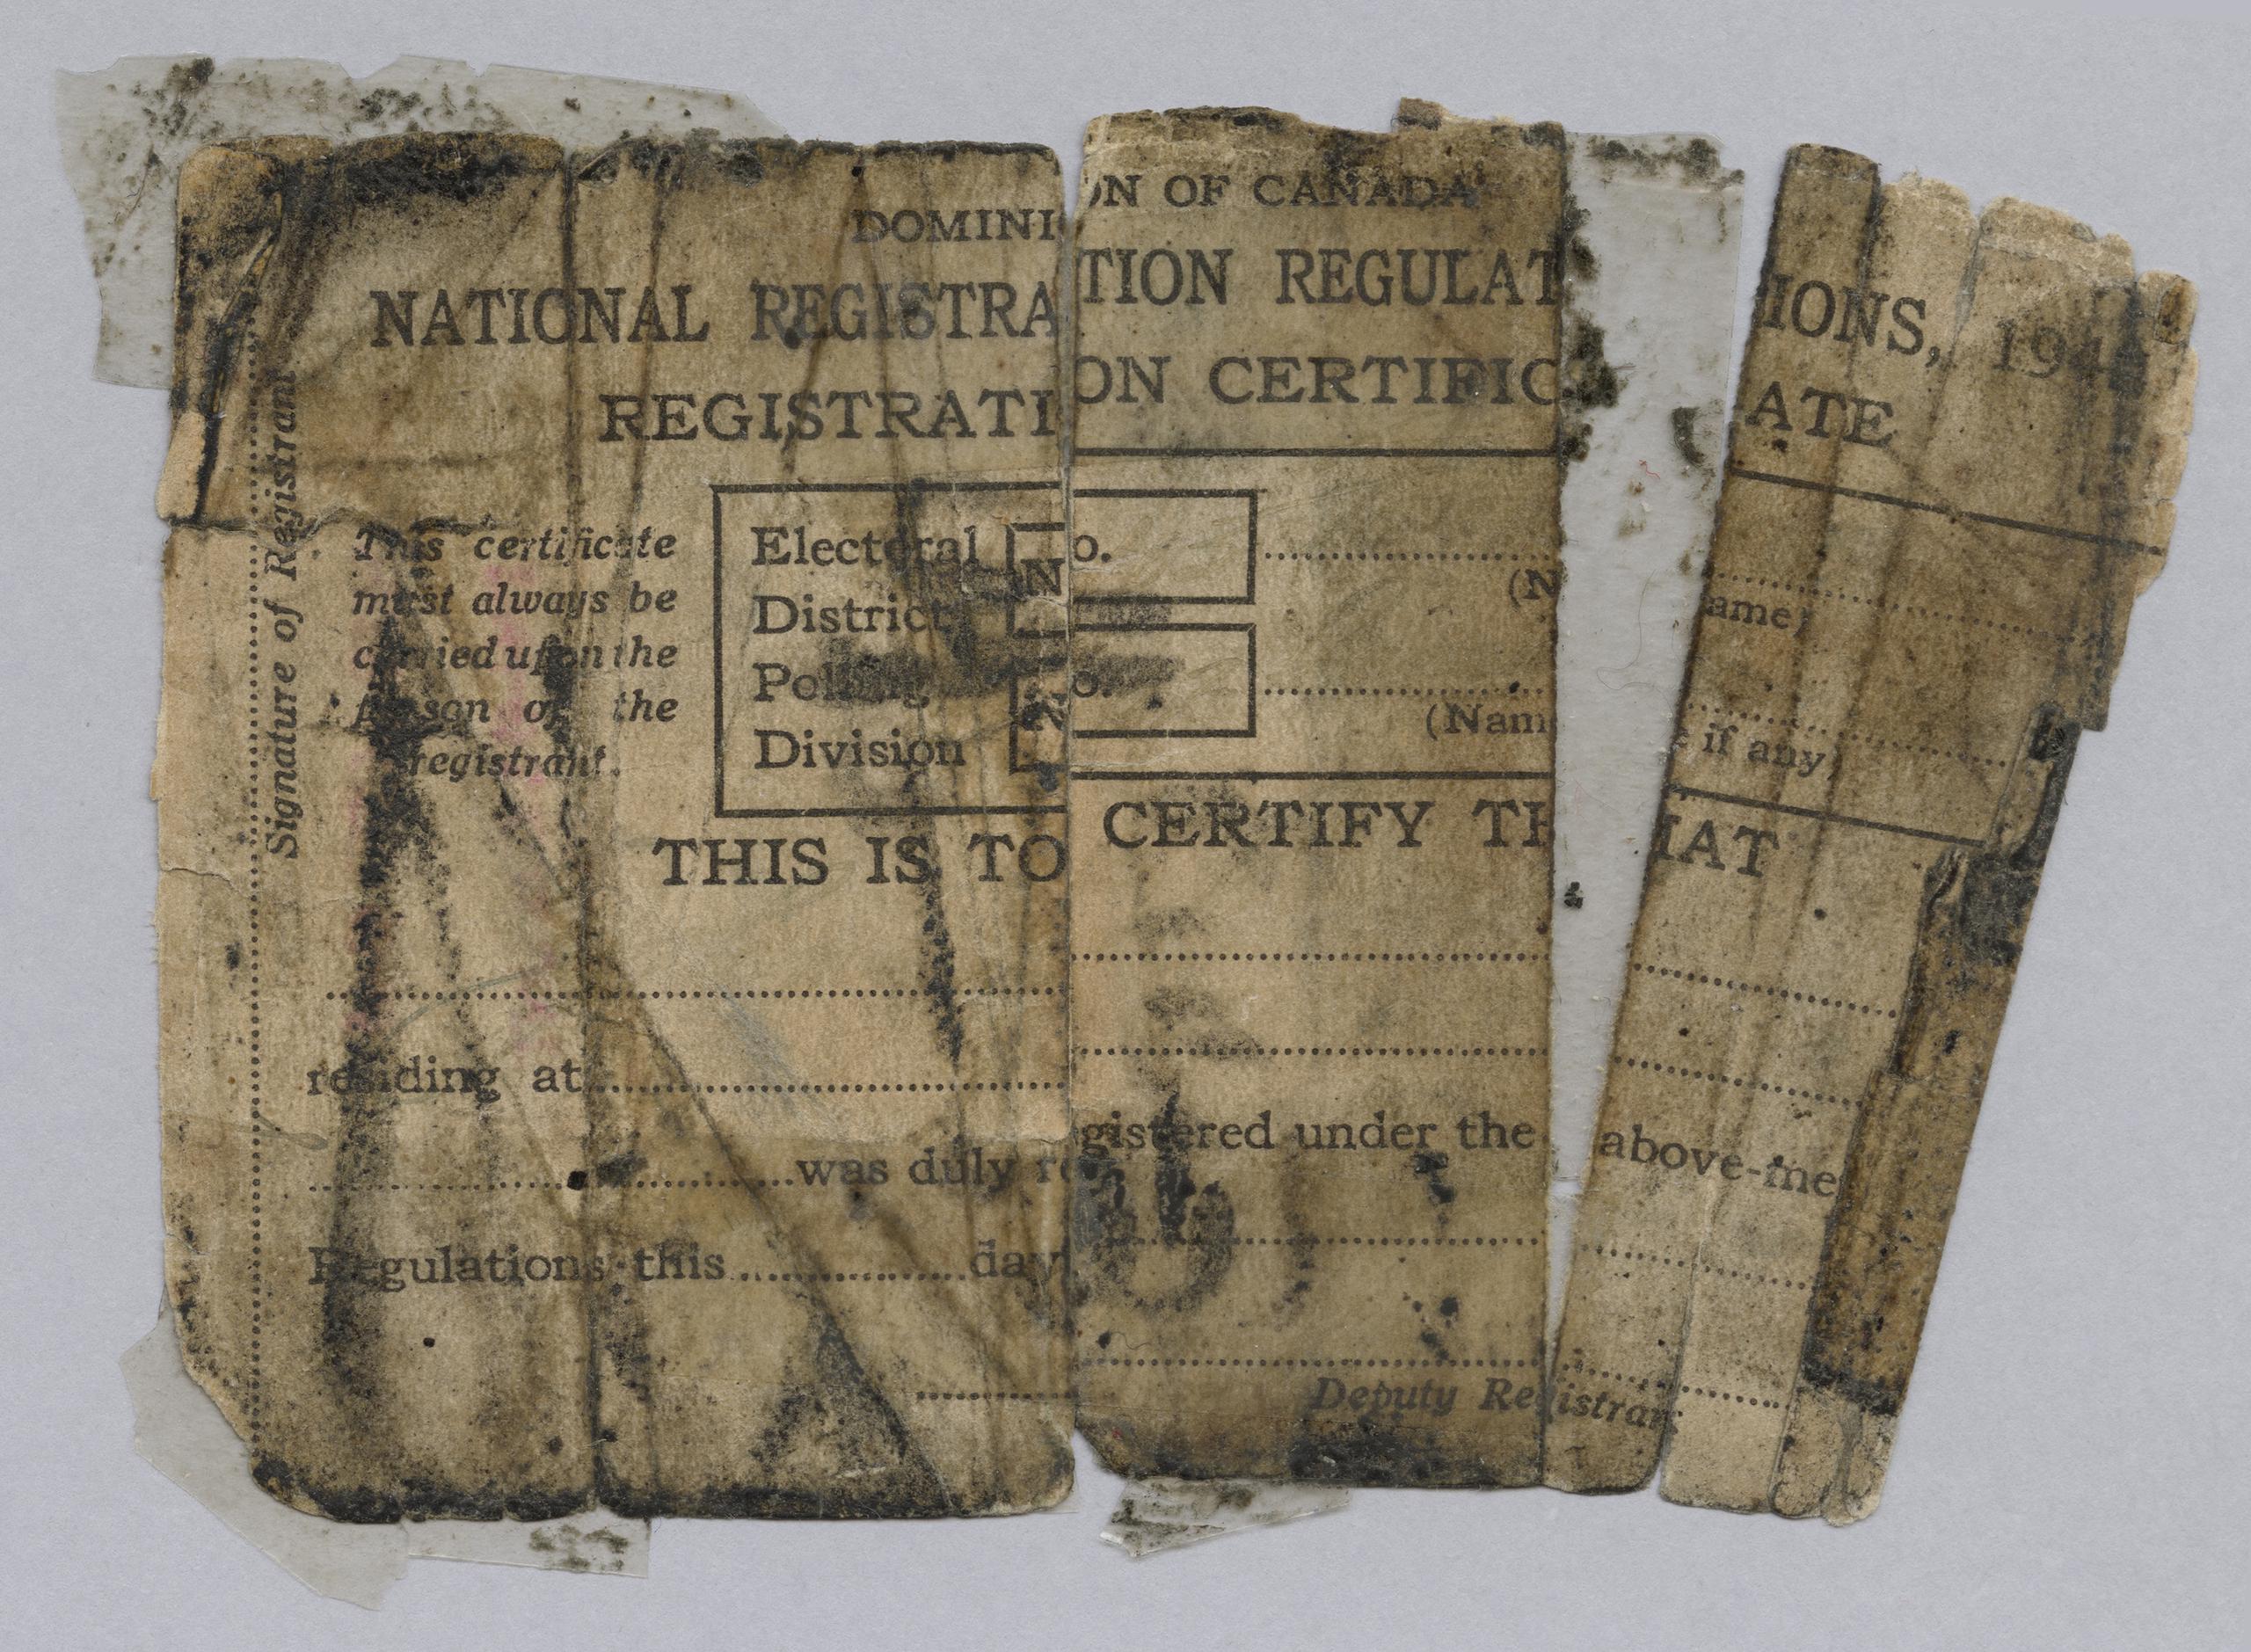 DOMINION OF CANADA
NATIONAL REGISTRATION REGULATIONS, 194
REGISTRATION CERTIFICATE
Signature of Registrant
This certificate
must always be
carried upon the
person of the
registrant.
Electoral
District
No.
(Name)
Polling
Division
No.
(Name if any)
THIS IS TO CERTIFY THAT
residing at
was duly registered under the above-me
Regulations this day
Deputy Registrar